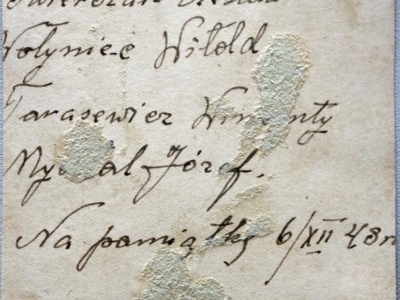 Wołyniec Witold
Tarasewicz Win nty
My al Józef.
Na pamiątkę 6/XII 48r